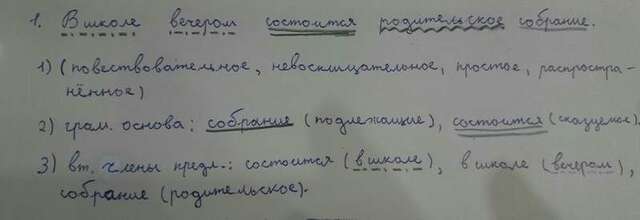 1. В школе вечером состоится родительское собрание.
1) (повествовательное, невосклицательное, простое, распростра-
нённое)
2) грам. основа: собрание (подлежащие), состоится (сказуемое).
3) вт. члены предл.: состоится (в школе), в школе (вечером),
собрание (родительское).